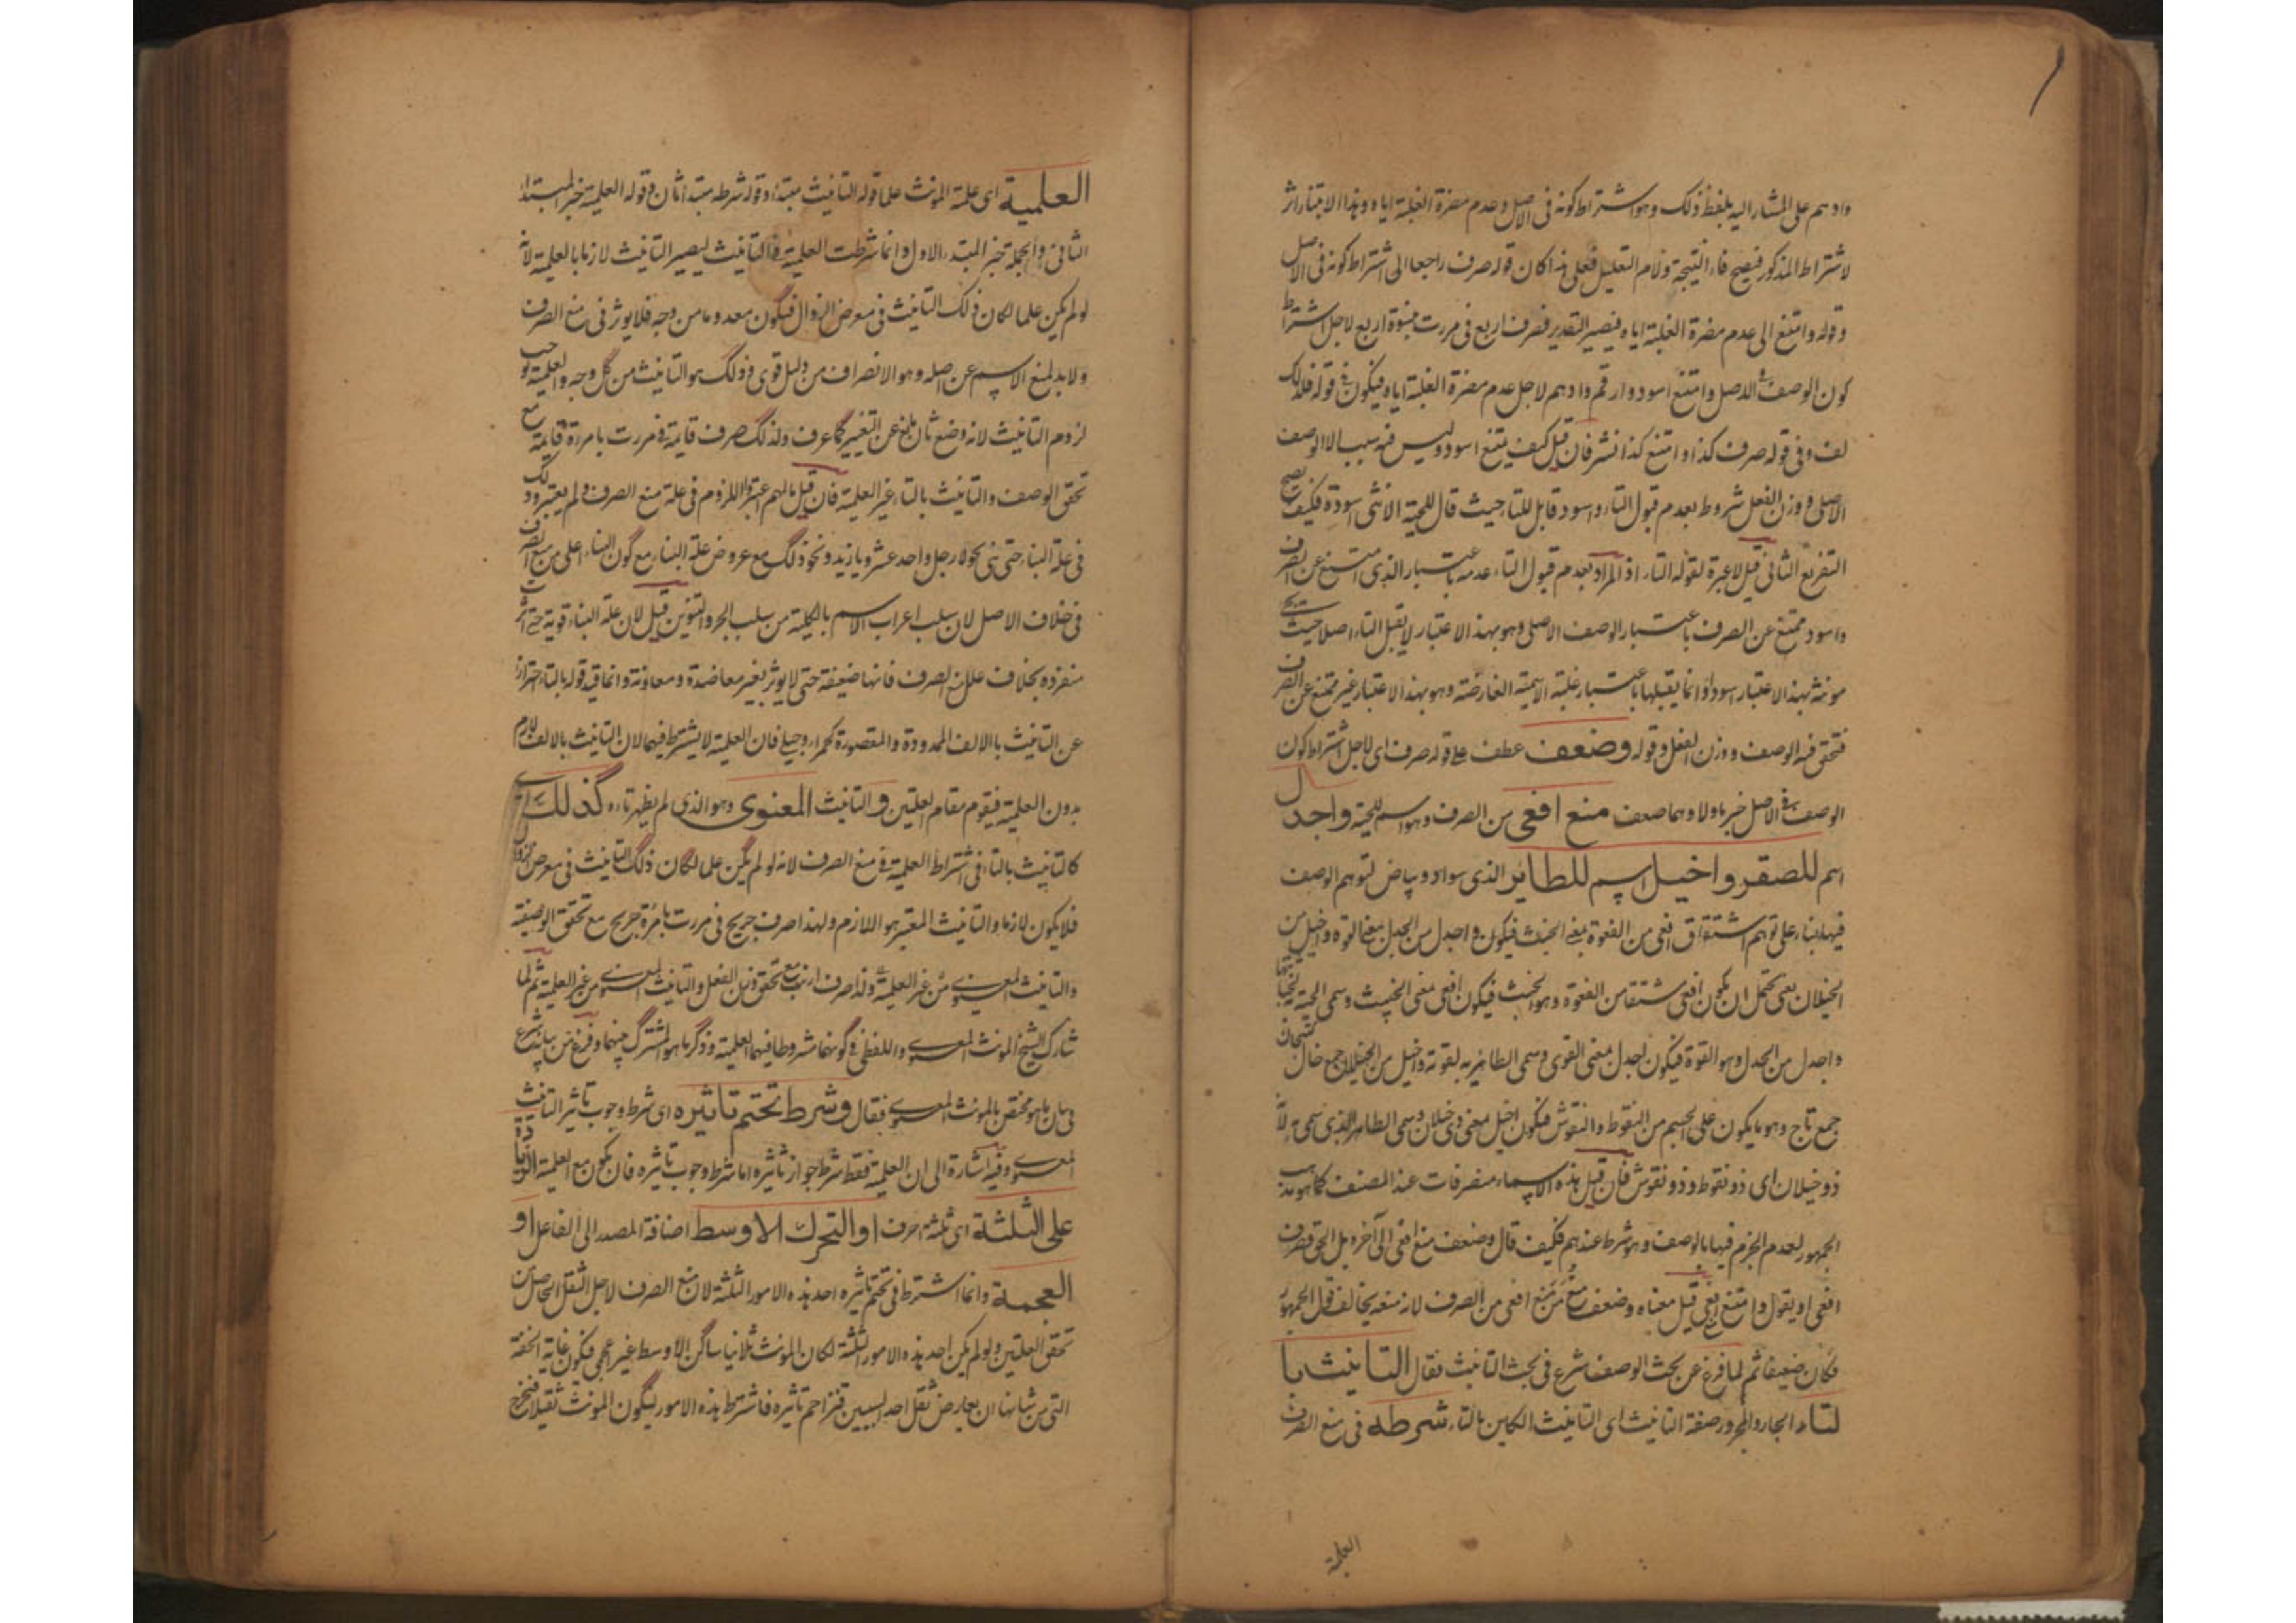 وادهم على المشار اليه بلفظ ذلك وهو اشتراط كونه فى الاصل وعدم مضرة الغلبة اياه وهذا الاعتبار اثر
لاشتراط المذكور فيصح فاء النتيجة ولام التعليل فعلى هذا كان قوله صرف راجعا الى اشتراط كونه فى الاصل
وقوله وامتنع الى عدم مضرة الغلبة اياه فيصير التقدير فصرف اربع فى مررت بنسوة اربع لاجل اشتراط
كون الوصف فى الاصل وامتنع اسود وارقم وادهم لاجل عدم مضرة الغلبة اياه فيكون فى قوله فلذلك
لف وفى قوله صرف كذا وامتنع كذا نشر فان قيل كيف يمتنع اسود وليس فيه سبب الا الوصف
الاصلى ووزن الفعل مشروط بعدم قبول التاء واسود قابل للتاء حيث قال للحية الانثى اسودة فكيف يصح
التفريع الثانى قيل لا عبرة لقوله التاء اذ المراد بعدم قبول التاء عدمه باعتبار الذى امتنع عن الصرف
واسود ممتنع عن الصرف باعتبار الوصف الاصلى وهو بهذا الاعتبار لا يقبل التاء اصلا حيث يجئ
مونثه بهذا الاعتبار سوداؤ انما يقبلها باعتبار غلبة الاسمية العارضة وهو بهذا الاعتبار غير ممتنع عن الصرف
فتحقق فيه الوصف ووزن الفعل وقوله وضعف عطف على قوله صرف اى لاجل اشتراط كون
الوصف فى الاصل خبر ما ولا وهما ضعف منع افعى من الصرف وهو اسم للحية واجدل
اسم للصقر واخيل اسم للطائر الذى سواد وبياض لتوهم الوصف
فيها بناء على توهم اشتقاق افعى من الفعوة بمعنى الخبث فيكون واجدل من الجدل بمعنى القوة واخيل من
الخيلان يعنى يحتمل ان يكون افعى مشتقا من الفعوة وهو الخبث فيكون افعى معنى الخبيث وسمى الحية لخبثها
واجدل من الجدل وهو القوة فيكون اجدل بمعنى القوى وسمى الطائر به لقوته واخيل من الخيلان جمع خال كتيجان
جمع تاج وهو ما يكون على الجسم من النقوط والنقوش فيكون اخيل معنى ذى خيلان وسمى الطائر الذى سمى به لانه
ذو خيلان اى ذو نقوط وذو نقوش فان قيل هذه الاسماء منصرفات عند المصنف كما هو مذهب
الجمهور لعدم الجزم فيها بالوصف وهو شرط عندهم فكيف قال وضعف منع افعى الى آخره بل الحق فصرف
افعى او يقول وامتنع افعى قيل معناه وضعف منع من منع افعى من الصرف لانه منعه يخالف قول الجمهور
فكان ضعيفا ثم لما فرغ عن بحث الوصف شرع فى بحث التانيث فقال التانيث با
لتاء الجار والمجرور صفة التانيث اى التانيث الكاين بالتاء شرطه فى منع الصرف
العلمية
العلمية اى علمية المونث علما قوله التانيث مبتدأ وقوله شرطه مبتدأ ثان وقوله العلمية خبر المبتدا
الثانى والجملة خبر المبتدء الاول وانما شرطت العلمية فى التانيث ليصير التانيث لازما بالعلمية لانه
لو لم يكن علما لكان ذلك التانيث فى معرض الزوال فيكون معدوما من وجه فلا يوثر فى منع الصرف
ولا بد لمنع الاسم عن اصله وهو الانصراف من دليل قوى وذلك هو التانيث من كل وجه والعلمية توجب
لزوم التانيث لانه وضع ثان يمنع عن التغيير كما عرف ولذلك صرف قايمة فى مررت بامرءة قايمة مع
تحقق الوصف والتانيث بالتاء غير العلمية فان قيل ما لهم اعتبروا اللزوم فى علة منع الصرف ولم يعتبروا ذلك
فى علة البناء حتى بنى نحو لا رجل واحد عشر ويا زيد ونحو ذلك مع عروض علة البناء مع كون البناء اعلى من منع الصرف
فى خلاف الاصل لان سلب اعراب الاسم بالكلية من سلب الجر والتنوين قيل لان علة البناء قوية حتى اثرت
منفردة بخلاف علل منع الصرف فانها ضعيفة حتى لا يوثر بغير معاضدة ومعاونة وانما قيد قوله بالتاء احترازا
عن التانيث بالالف الممدودة والمقصورة كحمراء وحبلى فان العلمية لا يشترط فيهما لان التانيث بالالف لازم
بدون العلمية فيقوم مقام العلتين والتانيث المعنوى وهو الذى لم يظهر تاءه كذلك اى
كالتانيث بالتاء فى اشتراط العلمية فى منع الصرف لانه لو لم يكن علما لكان ذلك التانيث فى معرض الزوال
فلا يكون لازما والتانيث المعتبر هو اللازم ولهذا صرف جريح فى مررت بامرءة جريح مع تحقق الوصفية
والتانيث المعنوى من غير العلمية ولذا صرف ارنب مع تحقق وزن الفعل والتانيث المعنوى من غير العلمية ثم لما
شارك الشيخ المونث المعنوى واللفظى فى كونهما مشروطا فيهما العلمية وذكر ما هو المشترك بينهما وفرغ من بيانه شرع
فى بيان ما هو مختص بالمونث المعنوى فقال وشرط تحتم تاثيره اى شرط وجوب تاثير التانيث
المعنوى وفيه اشارة الى ان العلمية فقط شرط جواز تاثيره اما شرط وجوب تاثيره فان يكون مع العلمية الزيادة
على الثلثة اى ثلثة احرف او التحرك الاوسط اضافة المصدر الى الفاعل او
العجمة وانما اشترط فى تحتم تاثيره احد هذه الامور الثلثة لان منع الصرف لاجل الثقل الحاصل من
تحقق العلتين ولو لم يكن احد هذه الامور الثلثة لكان المونث ثلاثيا ساكن الاوسط غير عجمى فيكون غاية الخفة
التى من شانها ان يعارض ثقل احد السببين فتزاحم تاثيره فاشترط هذه الامور ليكون المونث ثقيلا فيخرج